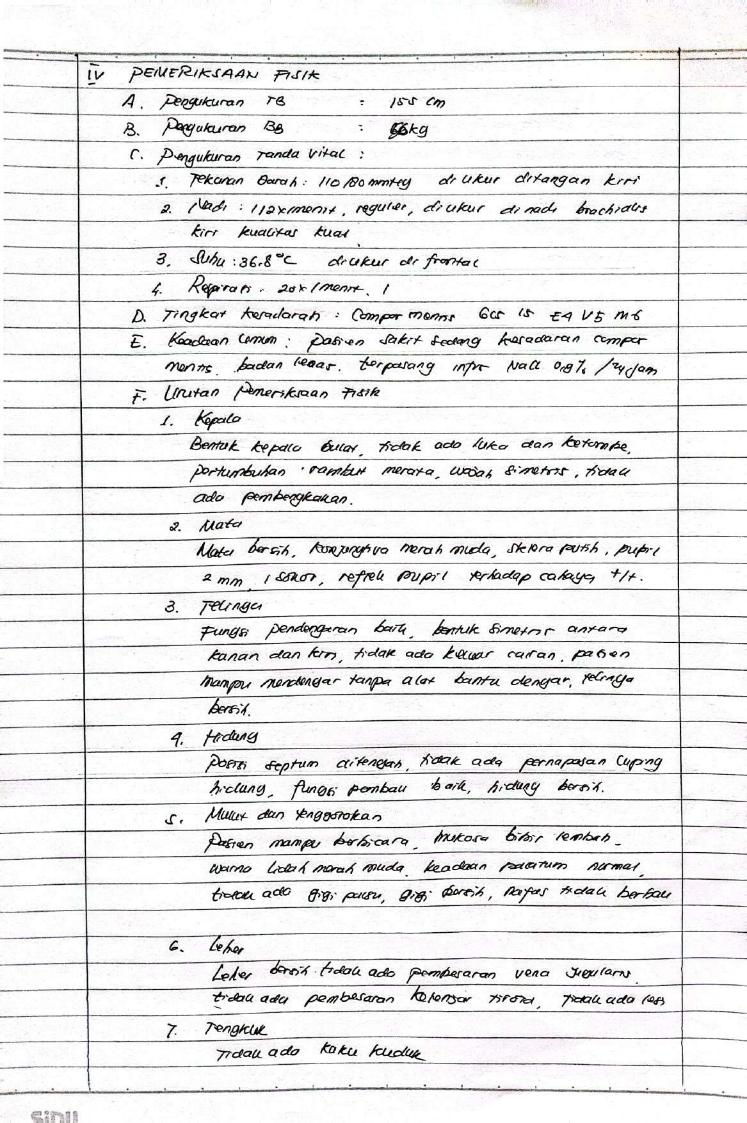 IV PEMERIKSAAN FISIK
A. Pengukuran TB : 155 cm
B. Pengukuran BB : 66kg
C. Pengukuran Tanda Vital :
1. Tekanan Darah : 110/80 mmHg diukur ditangan kiri
2. Nadi : 112x/menit, reguler, diukur di nadi brachialis
kiri kualitas kuat
3. Suhu : 36.8°C diukur di frontal
4. Respirasi : 20x/menit.
D. Tingkat Kesadarah : Compos menns GCS 15 E4 V5 M6
E. Keadaan Umum : Pasien sakit sedang kesadaran compos
menns, badan lemas. terpasang infus NaCl 0,9% /24jam
F. Urutan Pemeriksaan Fisik
1. Kepala
Bentuk kepala bulat, tidak ada luka dan ketombe,
pertumbuhan rambut merata, wajah simetris, tidak
ada pembengkakan.
2. Mata
Mata bersih, konjungtiva merah muda, sklera putih, pupil
2 mm, isokor, reflek pupil terhadap cahaya +/+.
3. Telinga
Fungsi pendengaran baik, bentuk simetris antara
kanan dan kiri, tidak ada keluar cairan, pasien
mampu mendengar tanpa alat bantu dengar, telinga
bersih.
4. Hidung
Posisi septum ditengah, tidak ada pernapasan cuping
hidung, fungsi pembau baik, hidung bersih.
5. Mulut dan tenggorokan
Pasien mampu berbicara, mukosa bibir lembab.
warna lidah merah muda, keadaan palatum normal,
tidak ada gigi palsu, gigi bersih, nafas tidak berbau
6. Leher
Leher bersih tidak ada pembesaran vena jugularis
tidak ada pembesaran kelenjar tiroid, tidak ada lesi
7. Tengkuk
Tidak ada kaku kuduk
SiDU